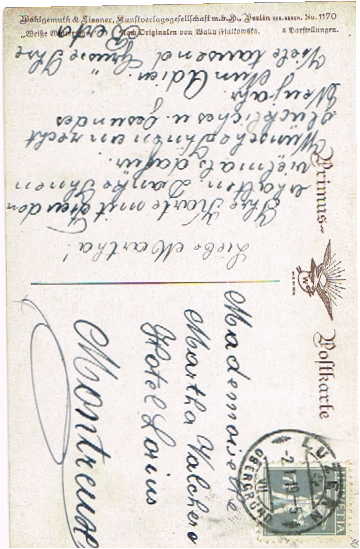 Wohlgemuth & Lissner, Kunstverlagsgesellschaft m.b.H., Berlin No. 1170
nach Originalen von Wally Fialkowska.
Darstellungen.
Primus-
Postkarte
Liebe Martha!
Ihre Karte mit Freuden
erhalten. Danke Ihnen
vielmals dafür.
Wünsche Ihnen ein recht
glückliches u. gesundes
Neujahr.
Nun Adieu.
Viele tausend Grüsse Ihre
Berta
Mademoiselle
Martha
Hotel
Montreux
LUZERN
HELVETIA